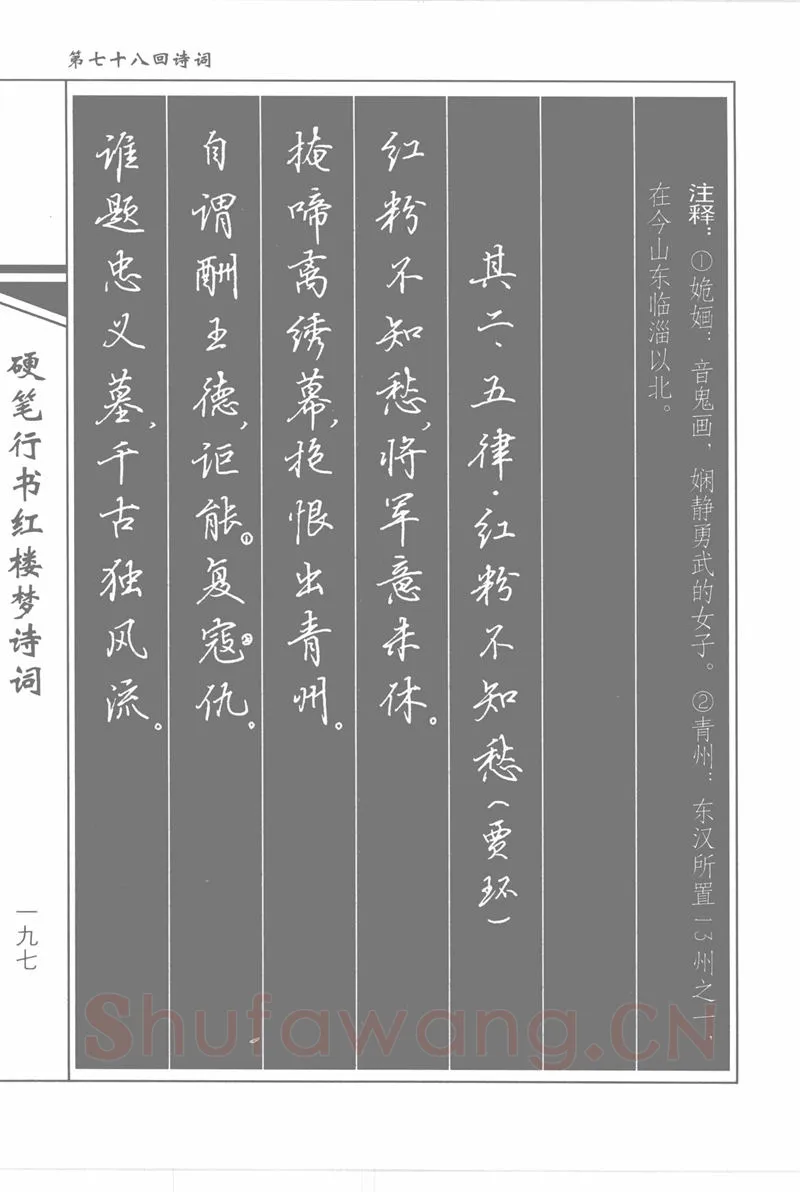 第七十八回诗词
注释：①姽婳：音鬼画，娴静勇武的女子。②青州：东汉所置13州之一，
在今山东临淄以北。
其二、五律·红粉不知愁(贾环)
红粉不知愁，将军意未休。
掩啼离绣幕，抱恨出青州。
自谓酬王德，讵能①复寇②仇。
谁题忠义墓，千古独风流。
硬笔行书红楼梦诗词
一九七
Shufawang.CN